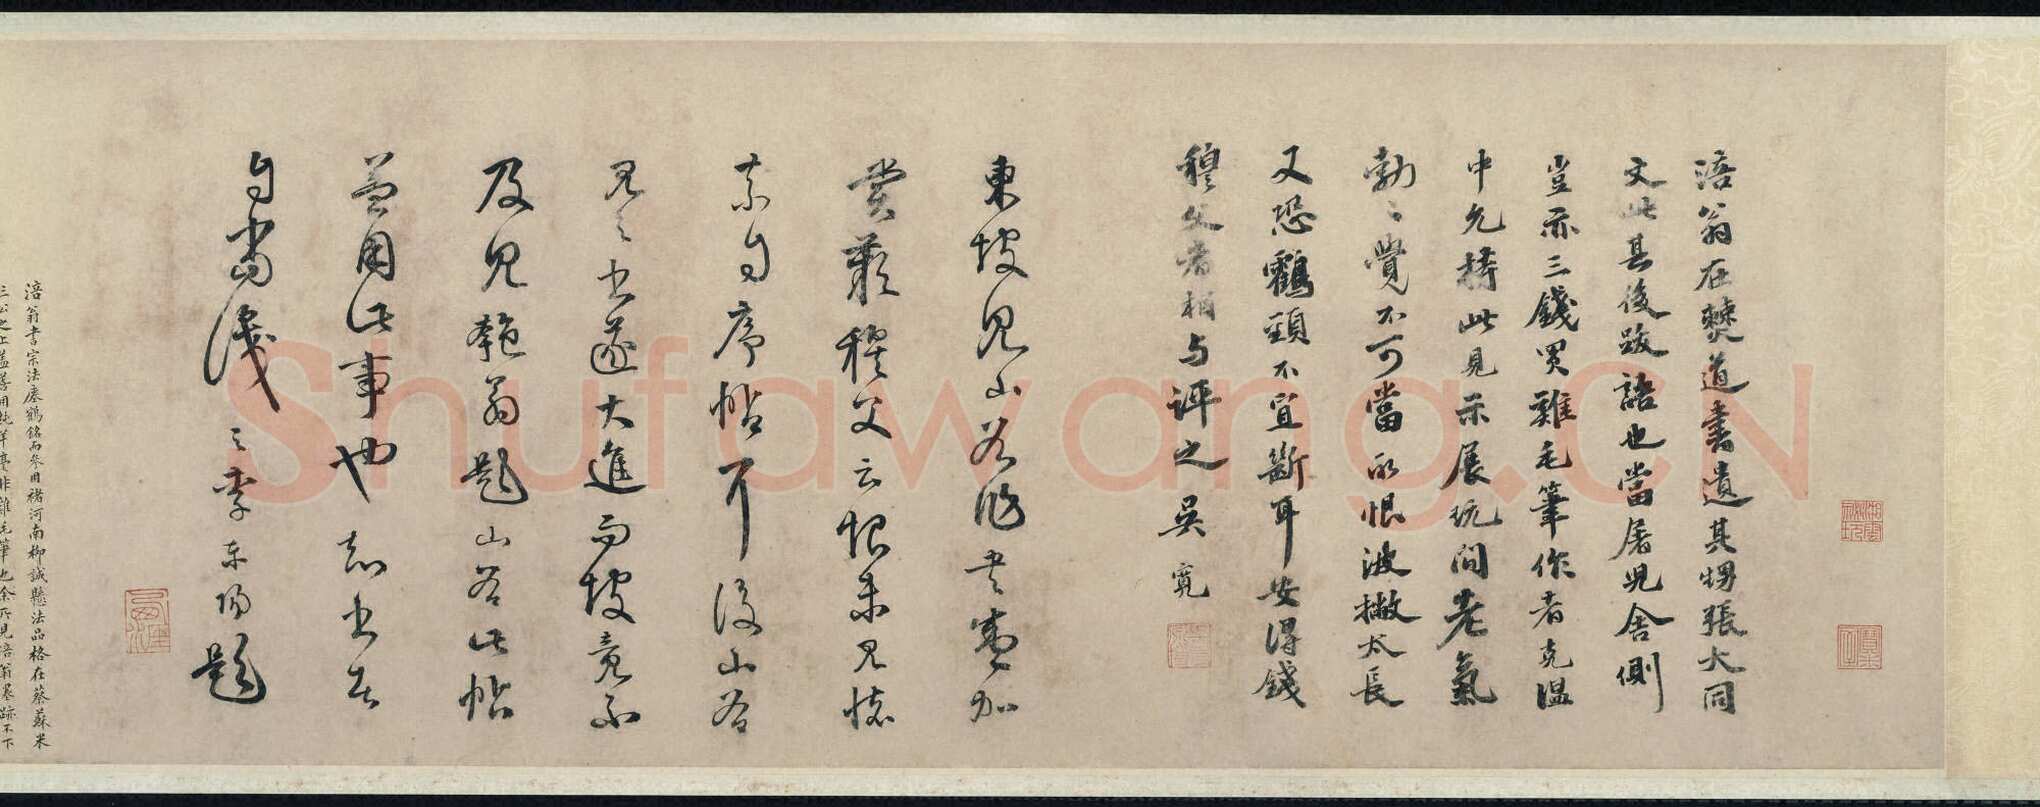 涪翁在僰道書遺其甥張大同
文此其後跋語也當居兕舍側
豈亦三錢買雞毛筆作者克溫
中允持此見示展玩間老氣
勃〻覺不可當所恨波撇太長
又恐鶴頸不宜斷耳安得錢
穆父者相与評之吳寬
東坡見山谷作書亟加
賞歎穆父云恨未見懷
素自序帖耳後山谷
見之書遂大進而坡竟不
及見匏翁題山谷此帖
蓋用此事也知書者
自當識之李東陽題
涪翁書宗法瘞鶴銘而參用褚河南柳誠懸法品格在蔡蘇米
三公之上蓋善用純羊毫非雞毛筆也余所見涪翁墨跡不下
Shufawang.CN